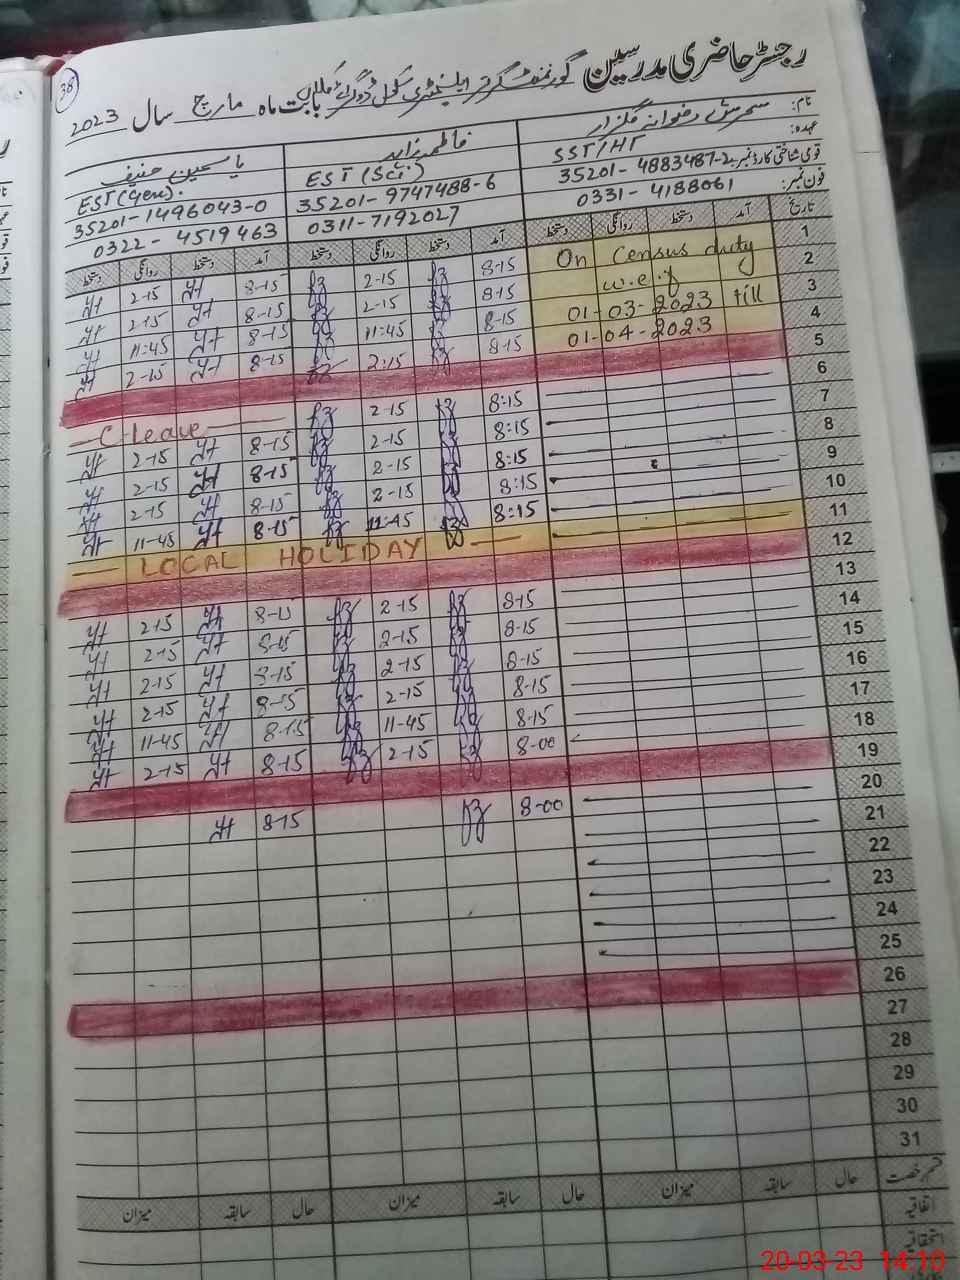 38
رجسٹر حاضری مدرسین گورنمنٹ گرلز ایلیمنٹری سکول
بابت ماہ مارچ سال 2023
نام: سحرش رضوانہ گلزار فاطمہ زاہد یاسمین حنیف
عہدہ: SST/HT EST (Sci) EST (Gen).
قومی شناختی کارڈ نمبر: 35201-4883487-2 35201-9747488-6 35201-1496043-0
فون نمبر: 0331-4188061 0311-7192027 0322-4519463
تاریخ آمد دستخط روانگی دستخط آمد دستخط روانگی دستخط آمد دستخط روانگی دستخط
1 On Census duty 8-15 2-15 8-15 2-15
2 w.e.f 8-15 2-15 8-15 2-15
3 01-03-2023 till 8-15 11:45 8-15 11:45
4 01-04-2023 8-15 2:15 8-15 2-15
5
6 8:15 2-15 C-Leave
7 8:15 2-15 8-15 2-15
8 8:15 2-15 8-15 2-15
9 8:15 2-15 8-15 2-15
10 8:15 11:45 8-15 11-45
11 LOCAL HOLIDAY
12
13 8-15 2-15 8-15 2-15
14 8-15 2-15 8-15 2-15
15 8-15 2-15 8-15 2-15
16 8-15 2-15 8-15 2-15
17 8-15 11-45 8-15 11-45
18 8-00 2-15 8-15 2-15
19
20 8-00 8-15
21
22
23
24
25
26
27
28
29
30
31
قسم رخصت حال سابقہ میزان حال سابقہ میزان حال سابقہ میزان
اتفاقیہ
استحقاقیہ
20-03-23 14:10